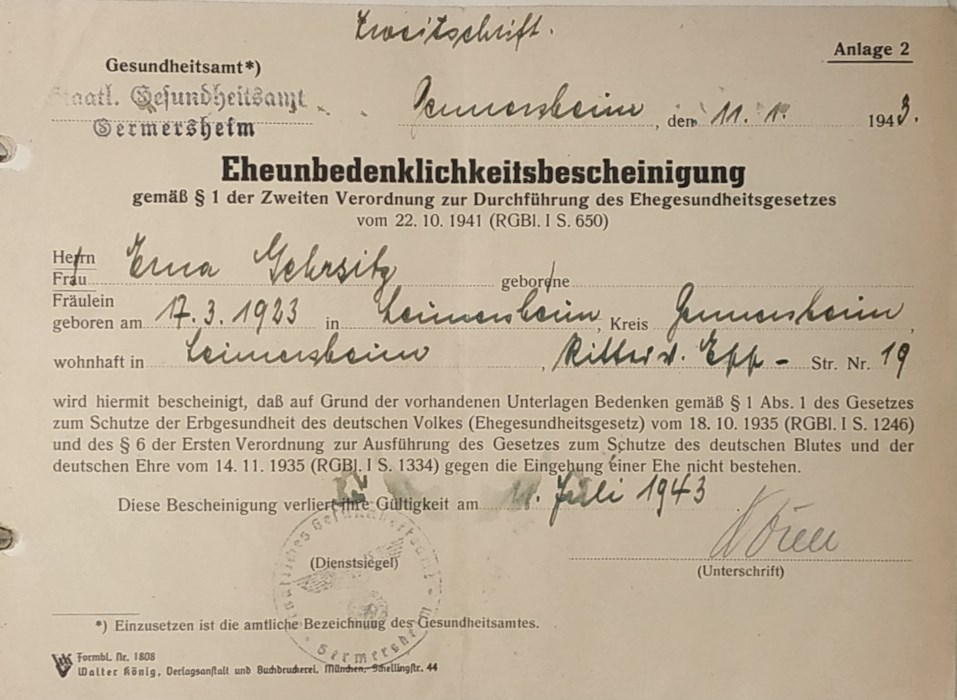 Zweitschrift.
Anlage 2
Gesundheitsamt*)
Staatl. Gesundheitsamt
Germersheim
Germersheim, den 11. 1. 1943.
Eheunbedenklichkeitsbescheinigung
gemäß § 1 der Zweiten Verordnung zur Durchführung des Ehegesundheitsgesetzes
vom 22. 10. 1941 (RGBl. I S. 650)
Herrn
Frau Erna Gehrsitz geborene
Fräulein
geboren am 17. 3. 1923 in Leimersheim, Kreis Germersheim,
wohnhaft in Leimersheim, Ritter v. Epp - Str. Nr. 19
wird hiermit bescheinigt, daß auf Grund der vorhandenen Unterlagen Bedenken gemäß § 1 Abs. 1 des Gesetzes
zum Schutze der Erbgesundheit des deutschen Volkes (Ehegesundheitsgesetz) vom 18. 10. 1935 (RGBl. I S. 1246)
und des § 6 der Ersten Verordnung zur Ausführung des Gesetzes zum Schutze des deutschen Blutes und der
deutschen Ehre vom 14. 11. 1935 (RGBl. I S. 1334) gegen die Eingehung einer Ehe nicht bestehen.
Diese Bescheinigung verliert ihre Gültigkeit am 11. Juli 1943
(Dienstsiegel)
Staatliches Gesundheitsamt
Germersheim
(Unterschrift)
*) Einzusetzen ist die amtliche Bezeichnung des Gesundheitsamtes.
Formbl. Nr. 1808
Walter König, Verlagsanstalt und Buchdruckerei, München, Schellingstr. 44